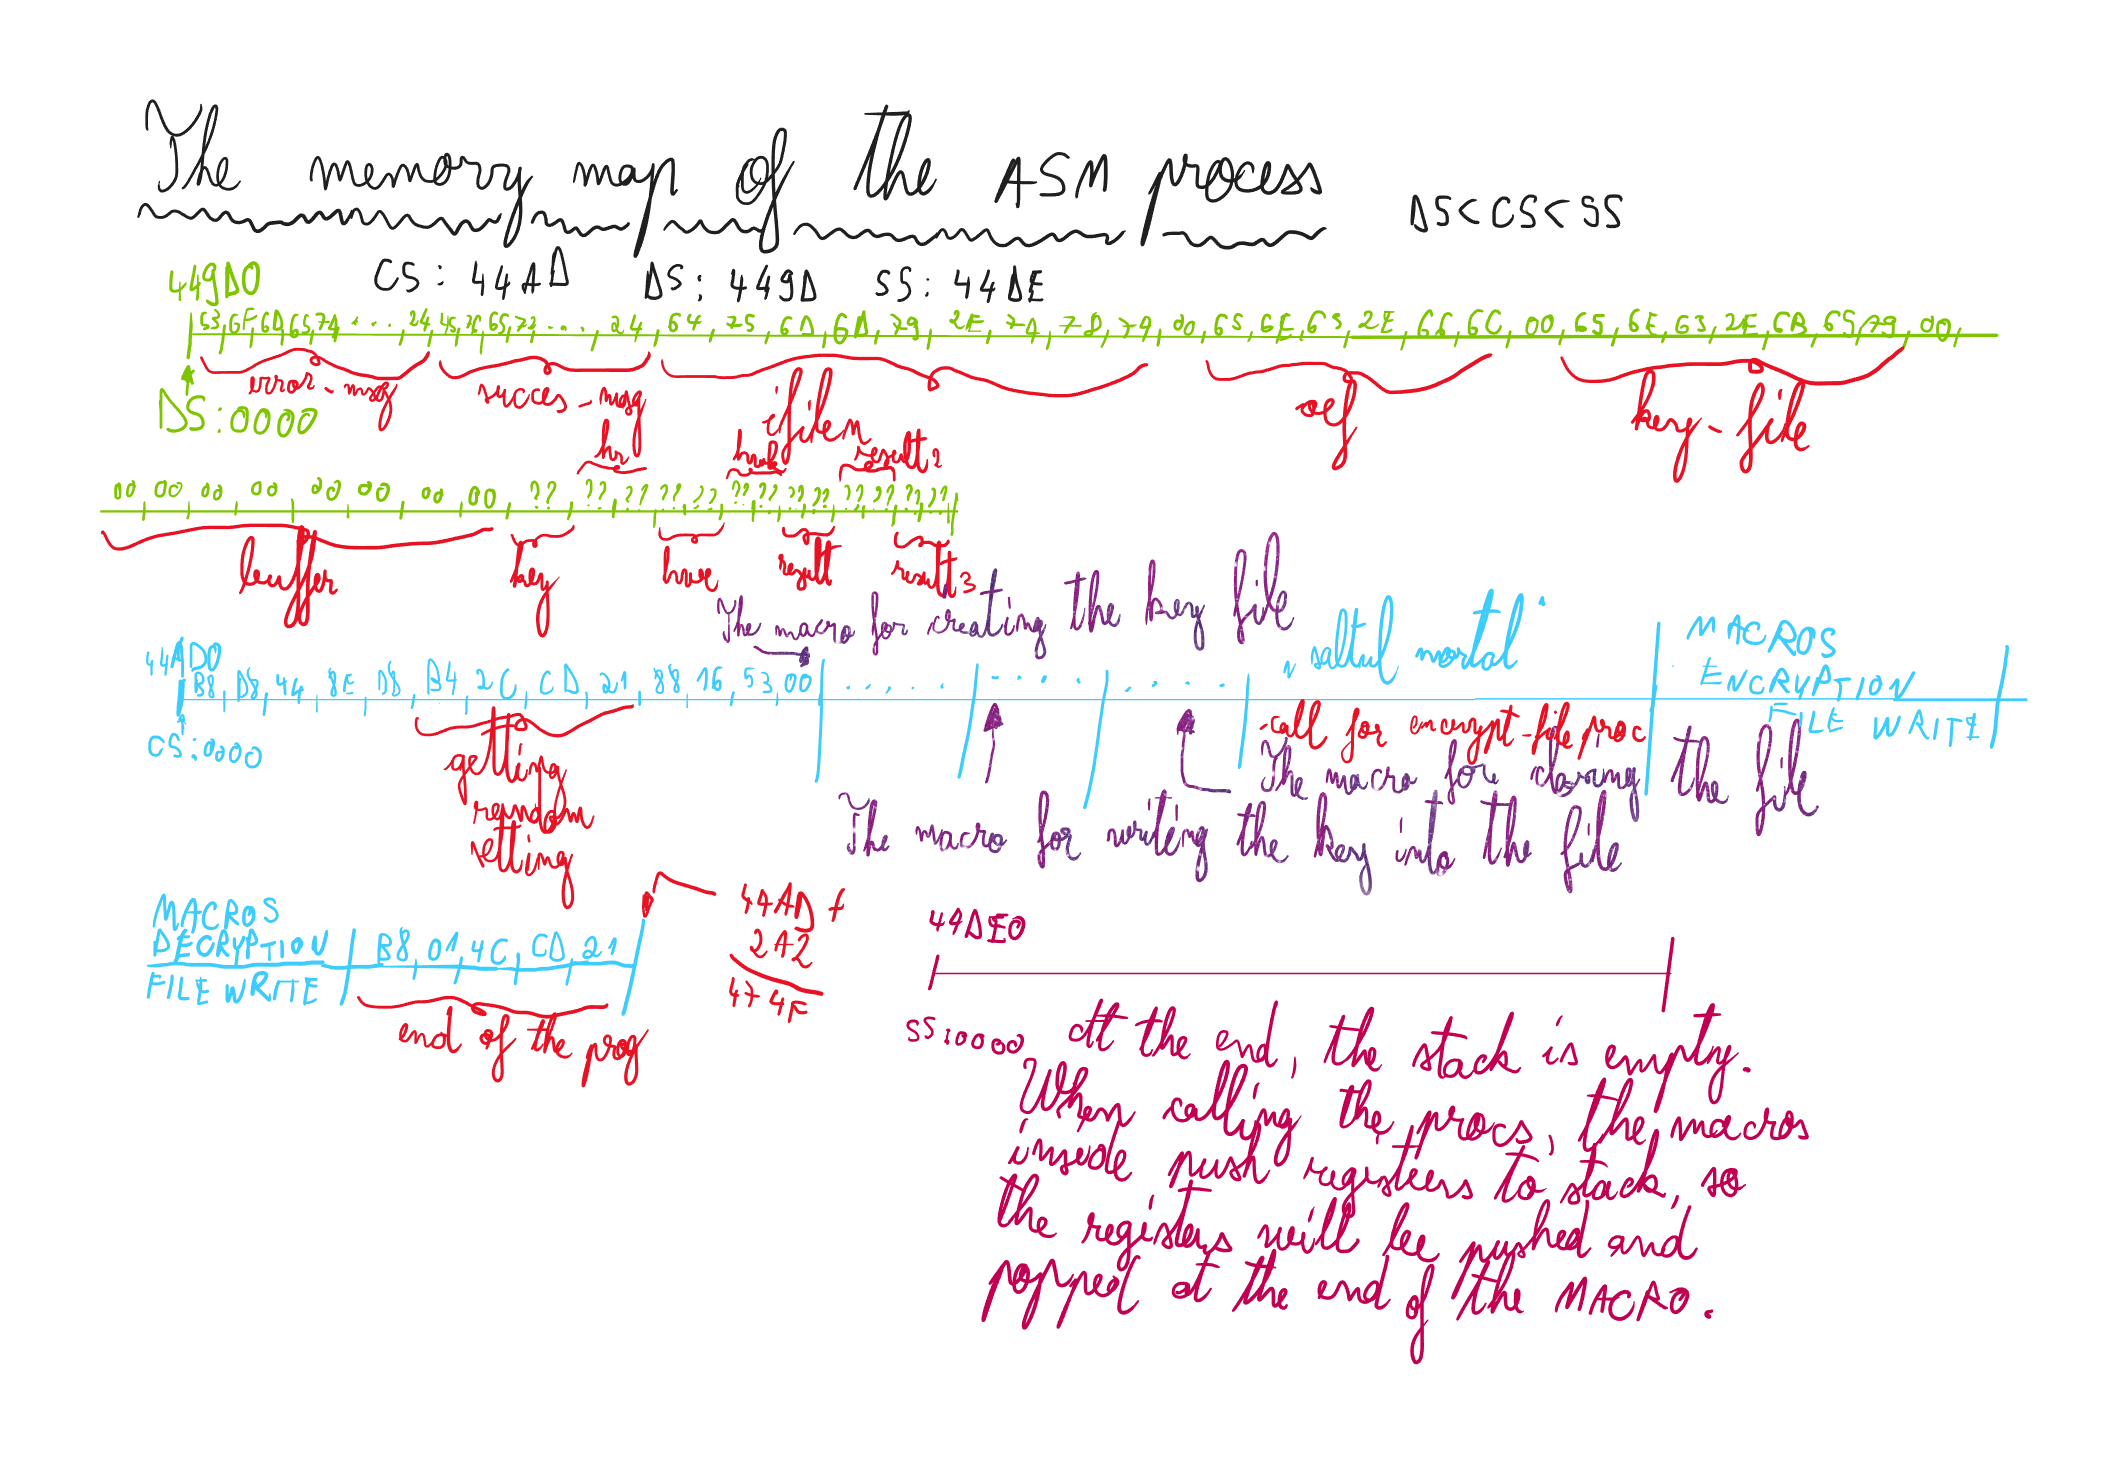 The memory map of the ASM process
DS<CS<SS
CS: 44AD DS: 449D SS: 44DE
449D0
53, 6F, 6D, 65, 74 .... 24, 45, 76, 65, 72 .... 24, 64, 75, 6D, 6D, 79, 2E, 74, 78, 74, 00, 65, 6E, 63, 2E, 66, 6C, 00, 65, 6E, 63, 2E, 6B, 65, 79, 00,
DS:0000
error-msg
succes-msg
ifilen
oef
key-file
hr
result2
00 00 00 00 00 00 00 00 ?? ?? ?? ?? ?? ?? ?? ?? ?? ?? ?? ?? ??
buffer
key
result
result3
The macro for creating the key file
44AD0
B8, D8, 44, 8E, D8, B4, 2C, CD, 21, 88, 16, 53, 00
CS:0000
getting
random
setting
"saltul mortal"
-call for encrypt-file proc
MACROS
ENCRYPTION
FILE WRITE
The macro for closing the file
The macro for writing the key into the file
MACROS
DECRYPTION
FILE WRITE
B8, 01, 4C, CD, 21
end of the prog
44AD +
2A2
474F
44DE0
SS:0000
At the end, the stack is empty.
When calling the procs, the macros
inside push registers to stack, so
the registers will be pushed and
popped at the end of the MACRO.